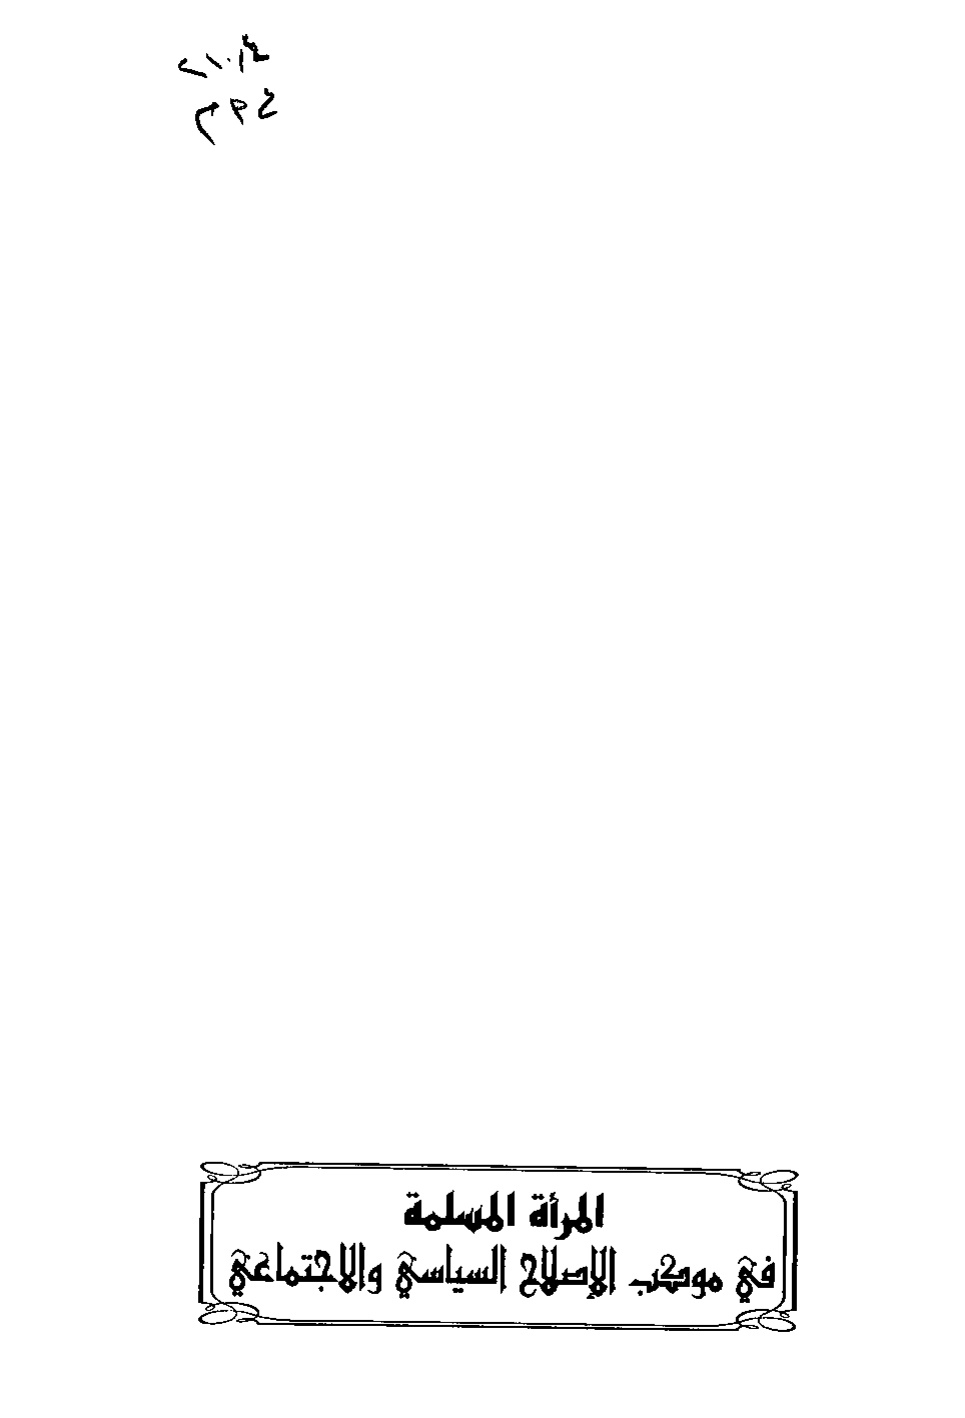 المرأة المسلمة
في موكب الإصلاح السياسي والاجتماعي